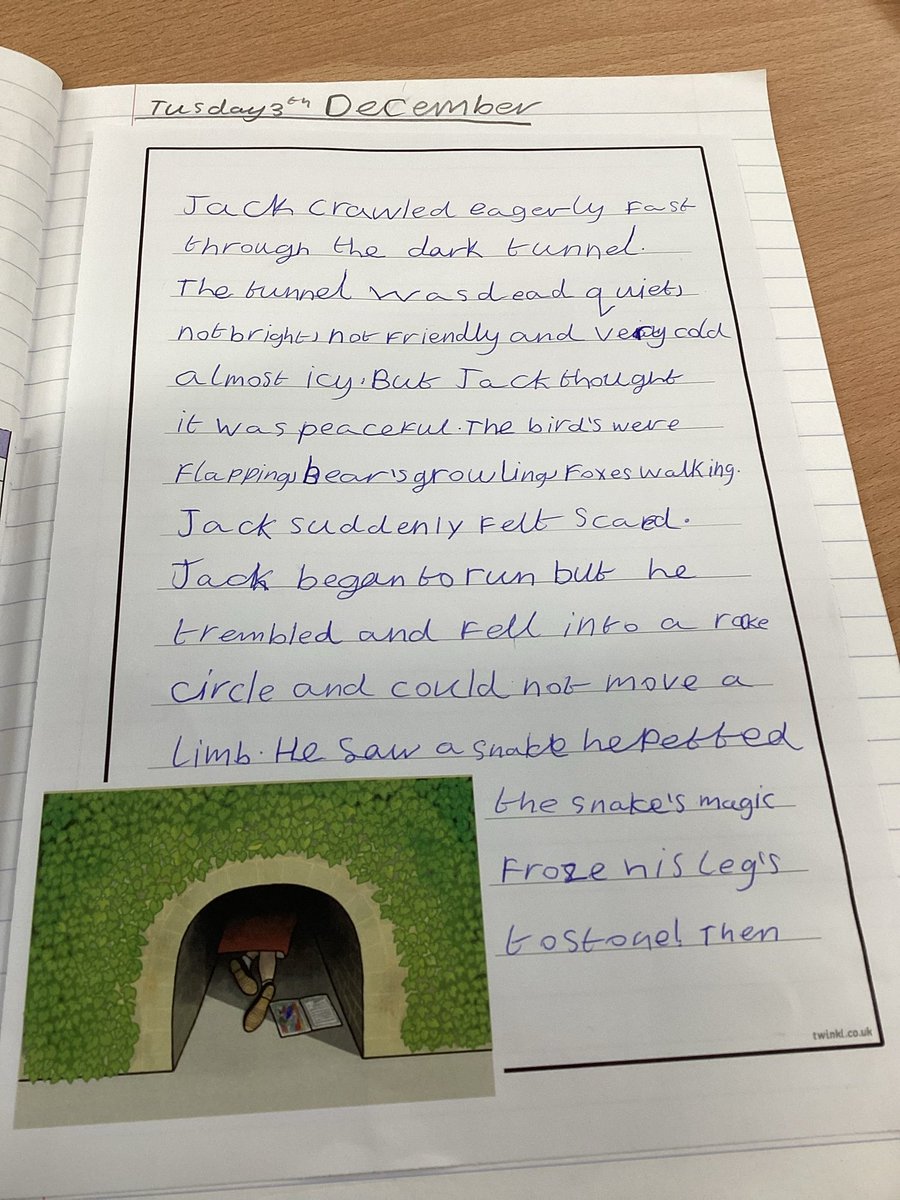 Tusday 3th December
Jack crawled eagerly fast
through the dark tunnel.
The tunnel was dead quiet,
not bright, not friendly and very cold
almost icy. But Jack thought
it was peaceful. The bird's were
flapping, bear's growling, foxes walking.
Jack suddenly felt scared.
Jack began to run but he
trembled and fell into a
circle and could not move a
limb. He saw a snake he petted
the snake's magic
froze his leg's
to stone! Then
twinkl.co.uk